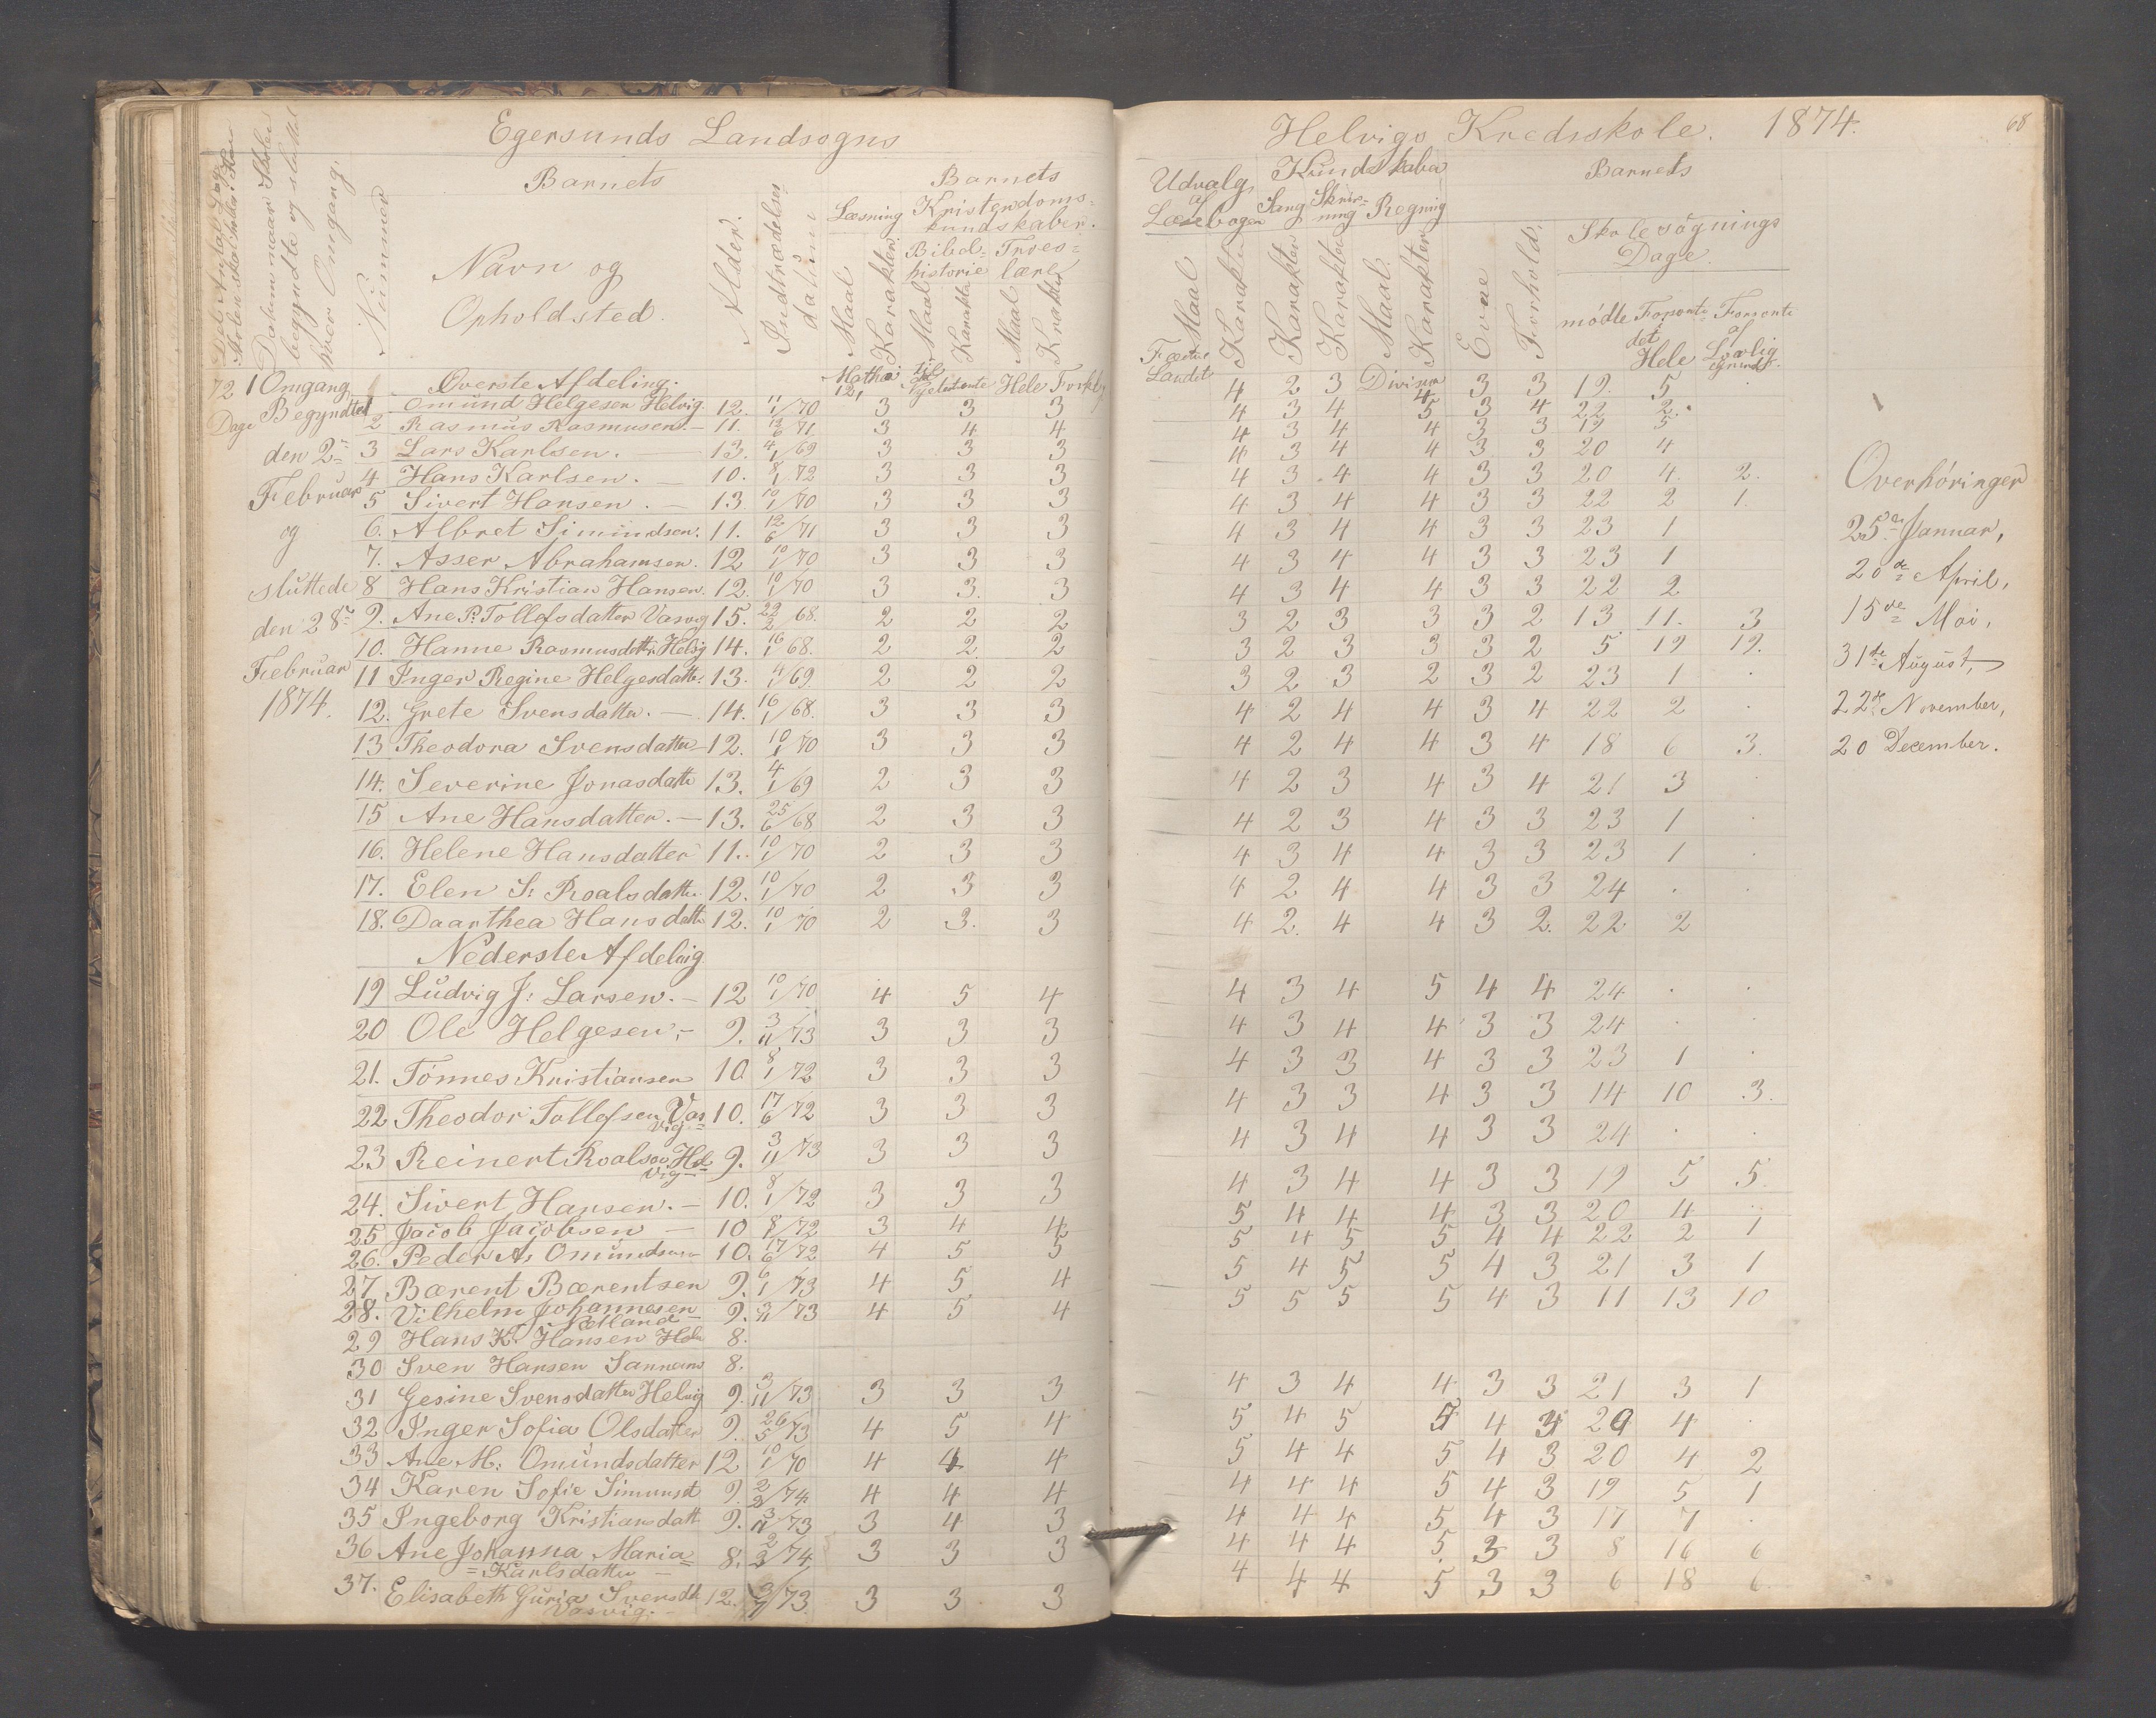 Egersunds Landsogns
Helvigs Kredsskole. 1874.
68
Det Antal Dage Skolen skal holdes i Kredsen
Datum naar Skolen begyndte og sluttet hver Omgang.
Nummer
Barnets
Navn og Opholdsted.
Alder.
Indtrædelses datum
Barnets
Læsning
Maal
Karakter
Kristendoms-kundskaber.
Bibel-historie
Maal
Karakter
Troes-lære
Maal
Karakter
Udvalg af Læsebogen
Maal
Karakter
Kundskaber
Sang
Karakter
Skriv-ning
Karakter
Regning
Maal.
Karakter
Evne
Forhold.
Barnets
Skolesøgnings Dage.
mødte
Forsømte det Hele
Forsømte af Lovlig Grund.
72 Dage
1 Omgang
Begyndtes
den 2
Februar
og
sluttede
den 28
Februar
1874.
Overste Afdeling.
Mathæi 12, Hele Forkl.
Fædrelandet
Division
1 Omund Helgesen Helvig. 12. 11/1 70 3 3 3 4 2 3 4 3 3 19. 5
2 Rasmus Rasmusen. — 11. 13/6 71 3 4 4 4 3 4 5 3 4 22 2.
3 Lars Karlsen. — 13. 4/1 69 3 3 3 4 3 4 4 3 3 19 5
4 Hans Karlsen. — 10. 8/1 72 3 3 3 4 3 4 4 3 3 20 4
5 Sivert Hansen. — 13. 10/1 70 3 3 3 4 3 4 4 3 3 20 4. 2.
6. Albret Simundsen. 11. 12/6 71 3 3 3 4 3 4 4 3 3 22 2 1.
7. Asser Abrahamsen. 12 10/1 70 3 3 3 4 3 4 4 3 3 23 1
8 Hans Kristian Hansen. 12. 10/1 70 3 3. 3 4 3 4 4 3 3 23 1
4 3 4 4 3 3 22 2
9. Ane P. Tollefsdatter Vasvig 15. 22/2 68. 2 2 2 3 2 3 3 3 2 13 11. 3
10. Hanne Rasmusdatter Helvig 14. 16/1 68. 2 2 2 3 2 3 3 3 2 5 19 19.
11 Inger Regine Helgesdatter. 13. 4/1 69. 2 2 2 3 2 3 2 3 2 23 1 .
12. Grete Svensdatter. — 14. 16/1 68. 3 3 3 4 2 4 4 3 4 22 2 .
13 Theodora Svensdatter — 12. 10/1 70 3 3 3 4 2 4 4 3 4 18 6 3.
14. Severine Jonasdatter 13. 4/1 69 2 3 3 4 2 3 4 3 4 21 3 .
15 Ane Hansdatter. — 13. 25/6 68 2 3 3 4 2 3 4 3 3 23 1 .
16. Helene Hansdatter 11. 10/1 70 2 3 3 4 3 4 4 3 3 23 1 .
17. Elen S: Roalsdatter. 12. 10/1 70 2 3 3 4 2 4 4 3 3 24 . .
18. Daarthea Hansdatt 12. 10/1 70 2 3. 3 4 2. 4 4 3 2. 22 2
Nederste Afdelig.
19 Ludvig J: Larsen. — 12 10/1 70 4 5 4 4 3 4 5 4 4 24 . .
20 Ole Helgesen. — 9. 3/11 73 3 3 3 4 3 4 4 3 3 24 . .
21. Tønnes Kristiansen 10. 8/1 72 3 3 3 4 3 3 4 3 3 23 1 .
22 Theodor Tollefsen Vas=vig 10. 17/6 72 3 3 3 4 3 3 4 3 3 14 10 3.
23 Reinert Roalsen Hel=vig 9. 3/11 73 3 3 3 4 3 4 4 3 3 24 . .
24. Sivert Hansen. — 10. 8/1 72 3 3 3 4 3 4 4 3 3 19 5 5
25 Jacob Jacobsen — 10 8/1 72 3 4 4 5 4 4 4 3 3 20 4 .
26. Peder A. Omundsen 10. 17/6 72 4 5 5 5 4 5 5 4 4 22 2 1
27. Bærent Bærentsen 9. 6/1 73 4 5 4 5 4 5 5 4 3 21 3 1
28. Vilhelm Johannesen Netland — 9. 3/11 73 4 5 4 5 5 5 5 4 3 11 13 10
29 Hans K. Hansen Hel 8.
30 Sven Hansen Sannæms 8.
31 Gesine Svensdatter Helvig 9. 3/11 73 3 3 3 4 3 4 4 3 3 21 3 1
32 Inger Sofia Olsdatter 9. 26/5 73 4 5 4 5 4 5 5 4 4 20 4 .
33 Ane M: Omundsdatter 12 10/1 70 4 4 4 5 4 4 5 4 3 20 4 2
34 Karen Sofie Simunsd 9. 2/2 74 4 4 4 4 4 4 5 4 3 19 5 1
35 Ingeborg Kristiansdatt 9. 3/11 73 3 4 3 4 4 4 5 4 3 17 7 .
36 Ane Johanna Maria = Karlsdatter — 8. 2/2 74 3 3 3 4 4 4 5 3 3 8 16 6
37. Elisabeth Guria Svensdt Vasvig. — 12. 3/11 73. 3 3 3 4 4 4 5 3 3 6 18 6
Overhøringer
25de Januar,
20de April,
15de Mai,
31te August,
22de November,
20 December.